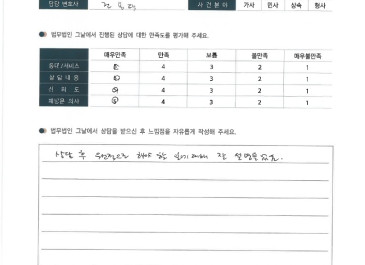 담당 변호사 사 건 분 야 가사 민사 상속 형사
법무법인 그날에서 진행된 상담에 대한 만족도를 평가해 주세요.
매우만족 만족 보통 불만족 매우불만족
응대/서비스 5 4 3 2 1
상 담 내 용 5 4 3 2 1
신 뢰 도 5 4 3 2 1
재방문 의사 5 4 3 2 1
법무법인 그날에서 상담을 받으신 후 느낌점을 자유롭게 작성해 주세요.
상담 후 해야 할 일에 대해 잘 설명